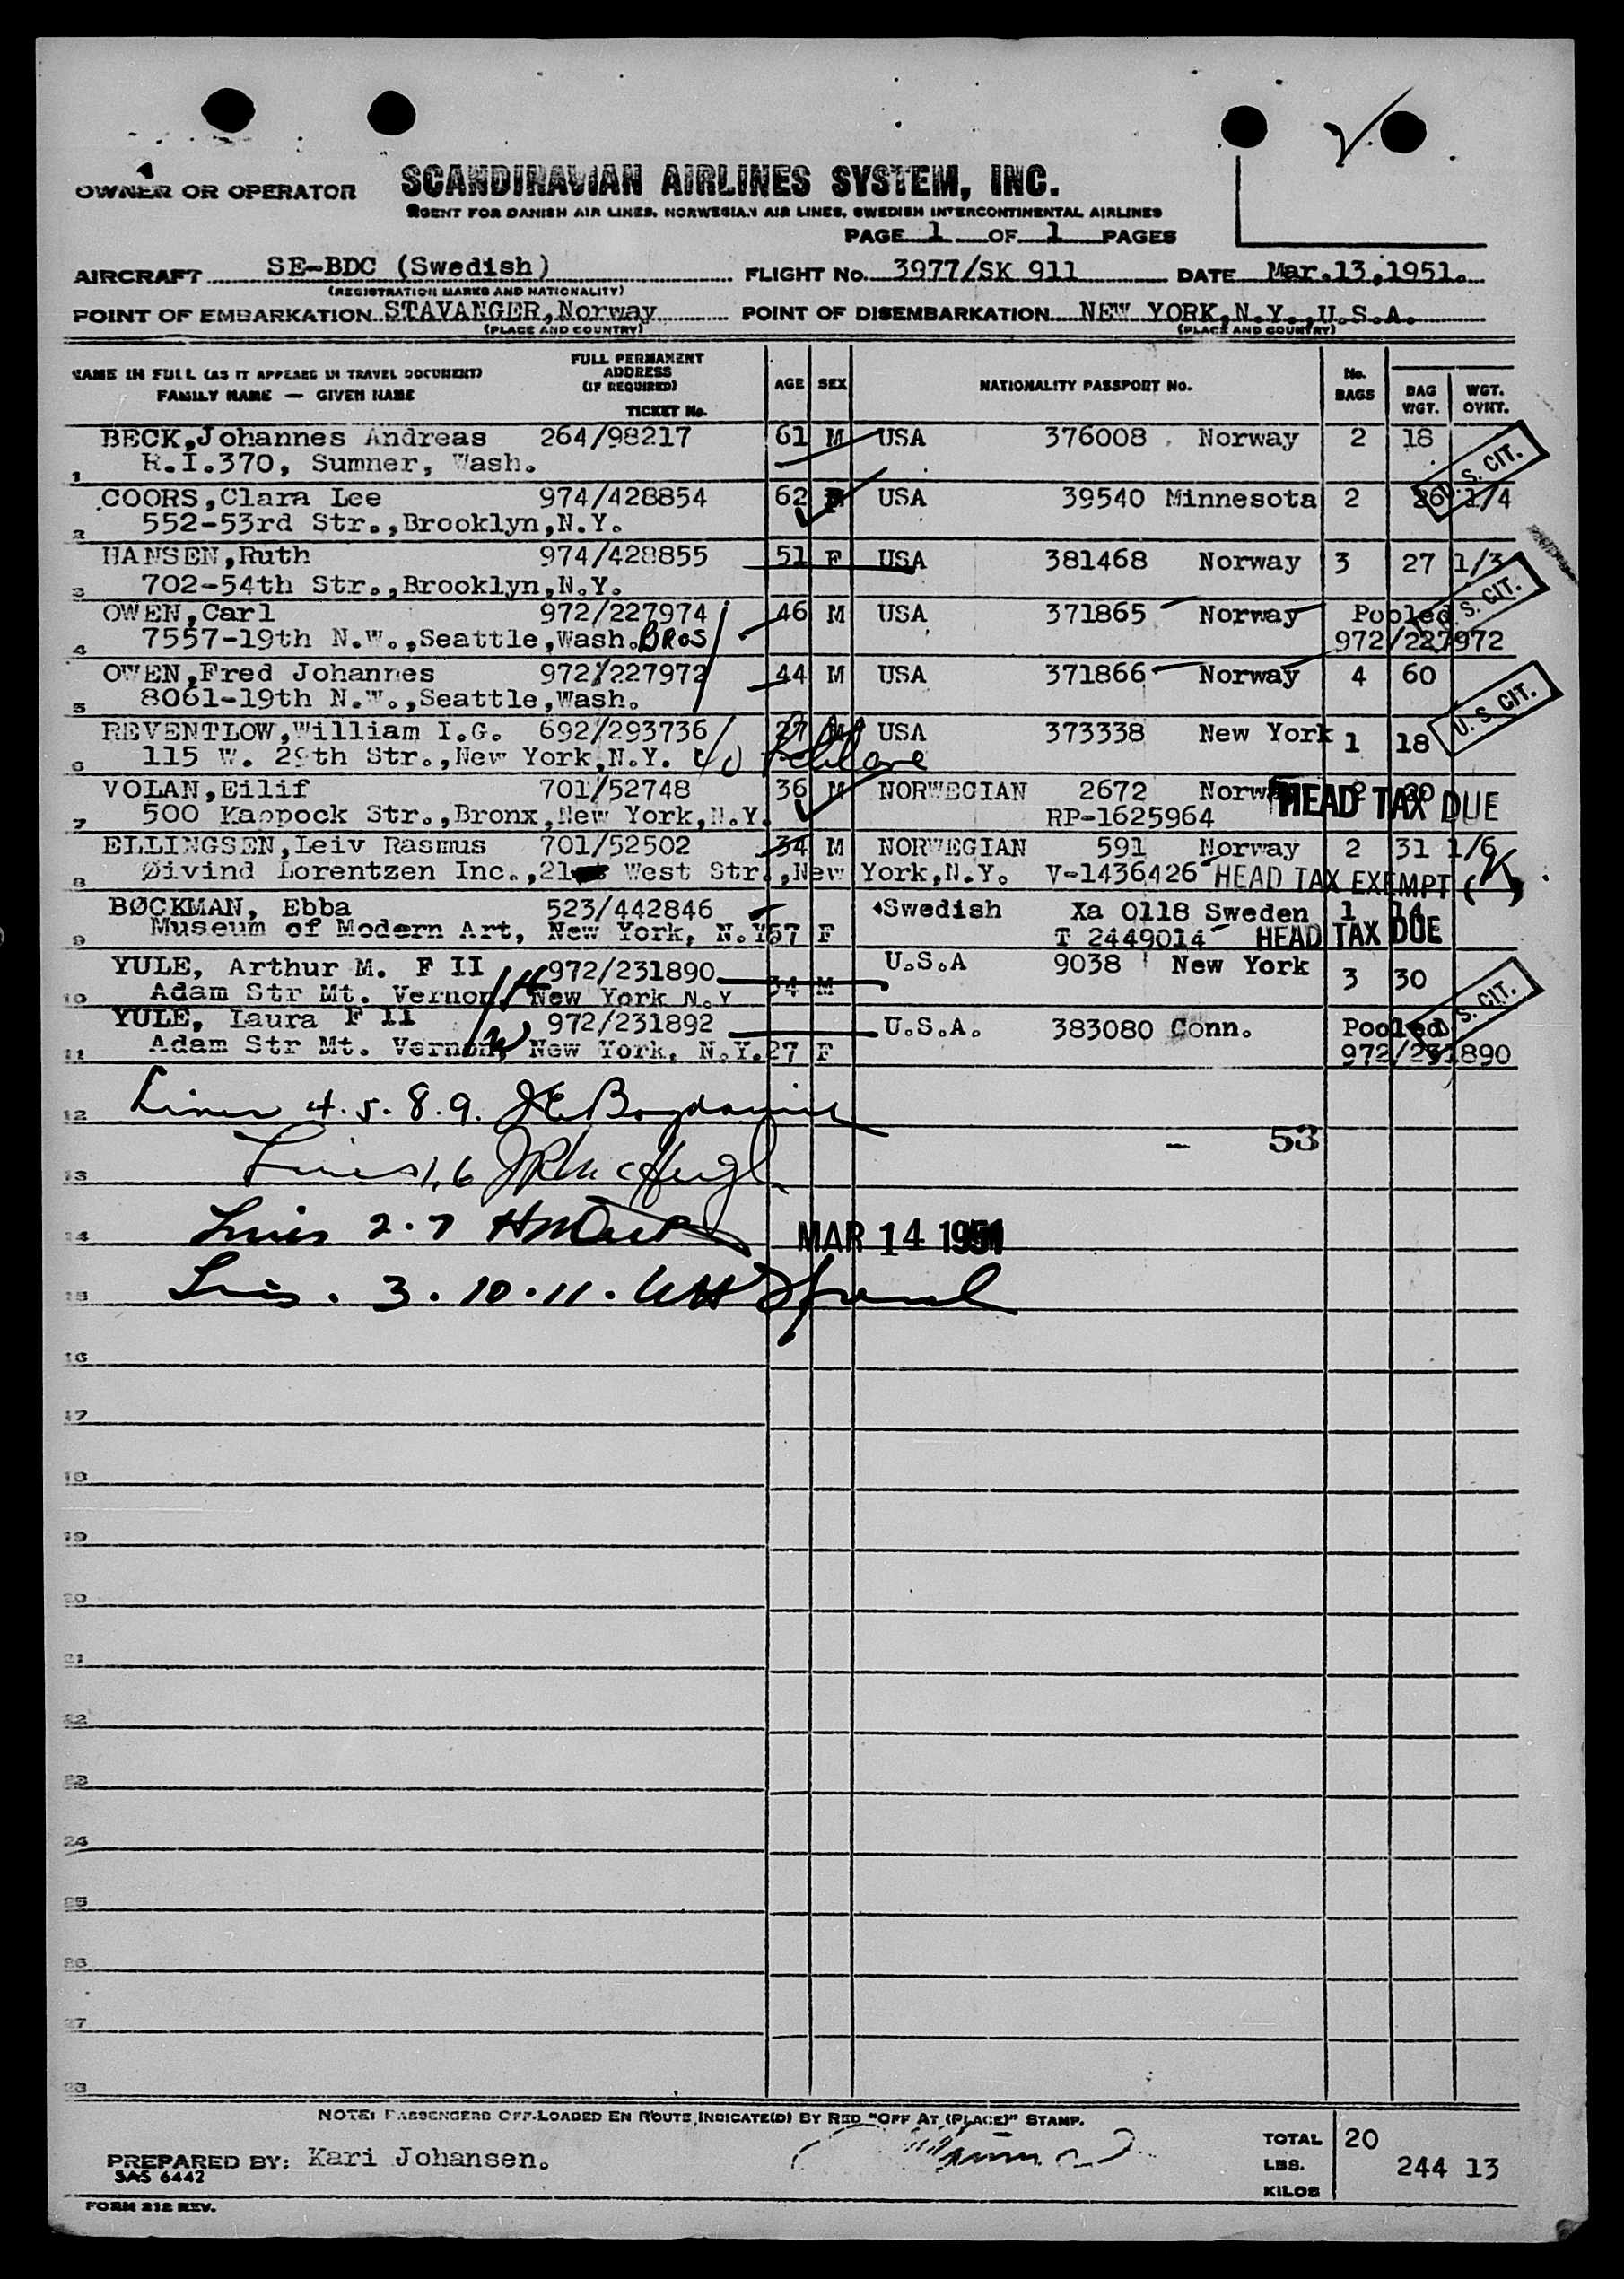 OWNER OR OPERATOR SCANDINAVIAN AIRLINES SYSTEM, INC.
AGENT FOR DANISH AIR LINES, NORWEGIAN AIR LINES, SWEDISH INTERCONTINENTAL AIRLINES
PAGE 1 OF 1 PAGES
AIRCRAFT SE-BDC (Swedish) FLIGHT No. 3977/SK 911 DATE Mar.13,1951.
(REGISTRATION MARKS AND NATIONALITY)
POINT OF EMBARKATION STAVANGER,Norway POINT OF DISEMBARKATION NEW YORK,N.Y.,U.S.A.
(PLACE AND COUNTRY) (PLACE AND COUNTRY)
NAME IN FULL (AS IT APPEARS IN TRAVEL DOCUMENT)
FAMILY NAME — GIVEN NAME
FULL PERMANENT
ADDRESS
(IF REQUIRED)
TICKET No.
AGE SEX NATIONALITY PASSPORT No. No. BAGS BAG WGT. WGT. OVNT.
BECK,Johannes Andreas 264/98217 61 M USA 376008 Norway 2 18
1 R.I.370, Sumner, Wash.
U.S. CIT.
COORS,Clara Lee 974/428854 62 F USA 39540 Minnesota 2 26 1/4
2 552-53rd Str.,Brooklyn,N.Y.
HANSEN,Ruth 974/428855 51 F USA 381468 Norway 3 27 1/3
3 702-54th Str.,Brooklyn,N.Y.
U.S. CIT.
OWEN,Carl 972/227974 46 M USA 371865 Norway Pooled
4 7557-19th N.W.,Seattle,Wash. BROS 972/227972
OWEN,Fred Johannes 972/227972 44 M USA 371866 Norway 4 60
5 8061-19th N.W.,Seattle,Wash.
U.S. CIT.
REVENTLOW,William I.G. 692/293736 27 M USA 373338 New York 1 18
6 115 W. 29th Str.,New York,N.Y. c/o
VOLAN,Eilif 701/52748 36 M NORWEGIAN 2672 Norway 2 20
HEAD TAX DUE
7 500 Kappock Str.,Bronx,New York,N.Y. RP-1625964
ELLINGSEN,Leiv Rasmus 701/52502 34 M NORWEGIAN 591 Norway 2 31 1/6
8 Øivind Lorentzen Inc.,21 West Str.,New York,N.Y. V-1436426 HEAD TAX EXEMPT (K)
BØCKMAN, Ebba 523/442846 Swedish Xa 0118 Sweden 1 14
9 Museum of Modern Art, New York, N.Y. 57 F T 2449014 HEAD TAX DUE
YULE, Arthur M. F II 972/231890 U.S.A 9038 New York 3 30
10 Adam Str Mt. Vernon, New York N.Y 34 M
H
U.S. CIT.
YULE, Laura F II 972/231892 U.S.A. 383080 Conn. Pooled
11 Adam Str Mt. Vernon, New York, N.Y. 27 F 972/231890
W
12 Lines 4.5.8.9.
- 53
13 Lines 1,6
14 Lines 2.7 MAR 14 1951
15 Lines. 3.10.11.
16
17
18
19
20
21
22
23
24
25
26
27
28
NOTE: PASSENGERS OFF-LOADED EN ROUTE INDICATE(D) BY RED "OFF AT (PLACE)" STAMP.
PREPARED BY: Kari Johansen.
SAS 6442
TOTAL 20
LBS. 244 13
KILOS
FORM 212 REV.